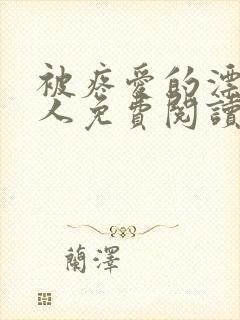 被疼愛的漂
人免費閱讀
蘭澤